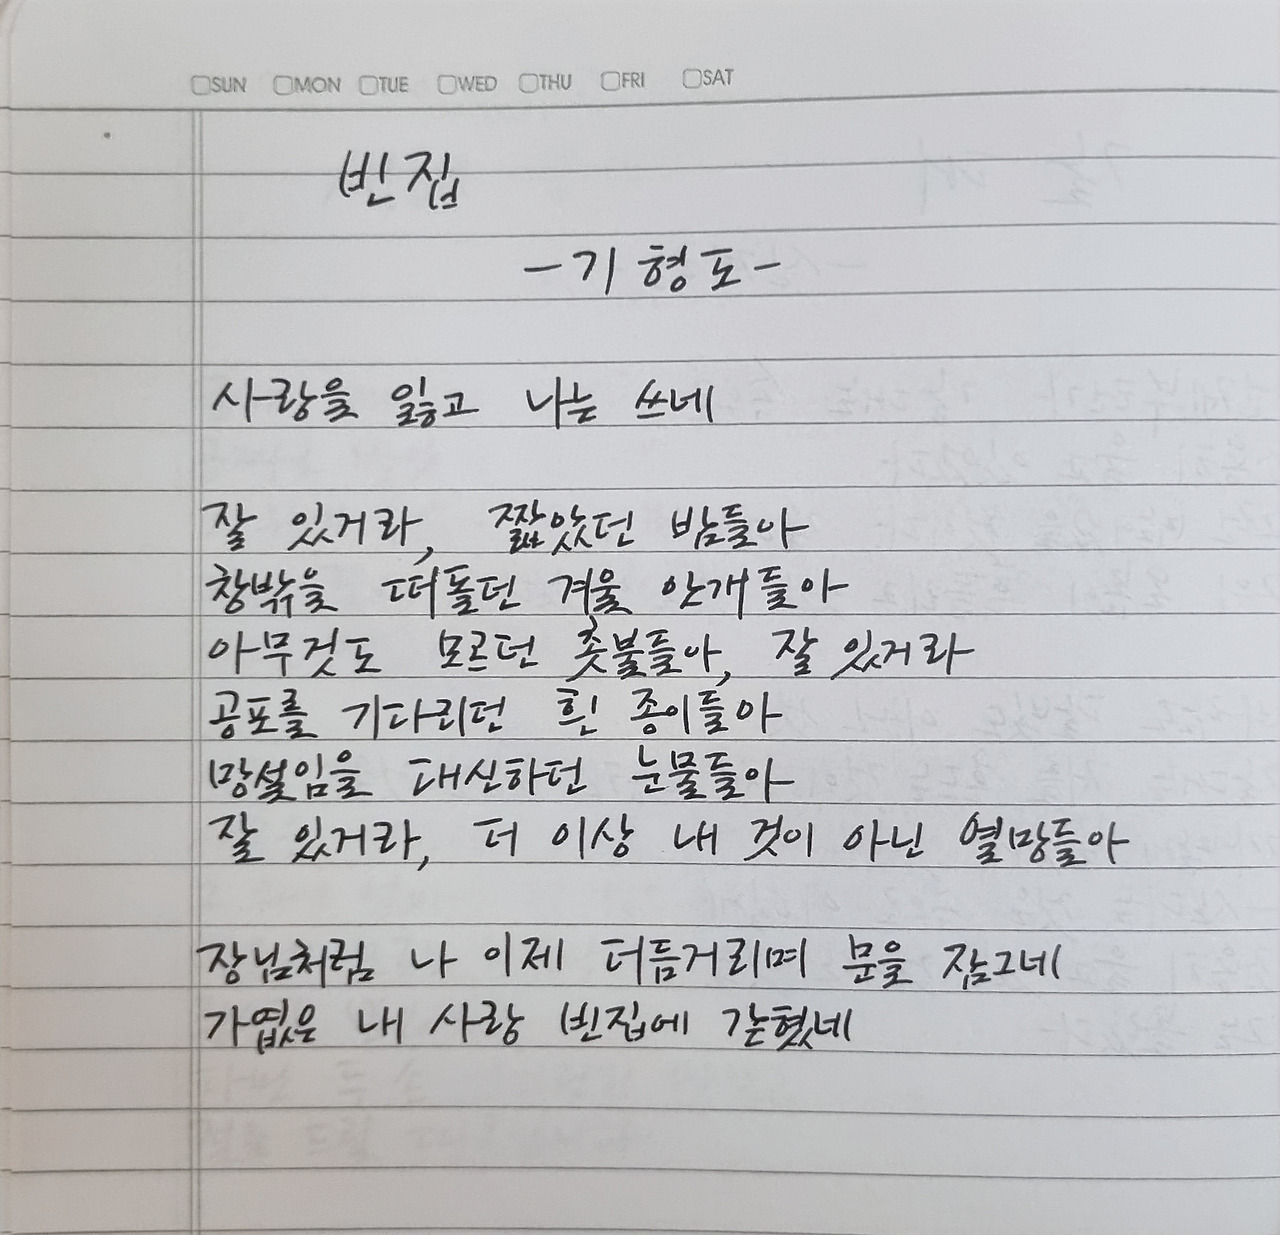 SUN MON TUE WED THU FRI SAT
빈집
-기형도-
사랑을 잃고 나는 쓰네
잘 있거라, 짧았던 밤들아
창밖을 떠돌던 겨울 안개들아
아무것도 모르던 촛불들아, 잘 있거라
공포를 기다리던 흰 종이들아
망설임을 대신하던 눈물들아
잘 있거라, 더 이상 내 것이 아닌 열망들아
장님처럼 나 이제 더듬거리며 문을 잠그네
가엾은 내 사랑 빈집에 갇혔네